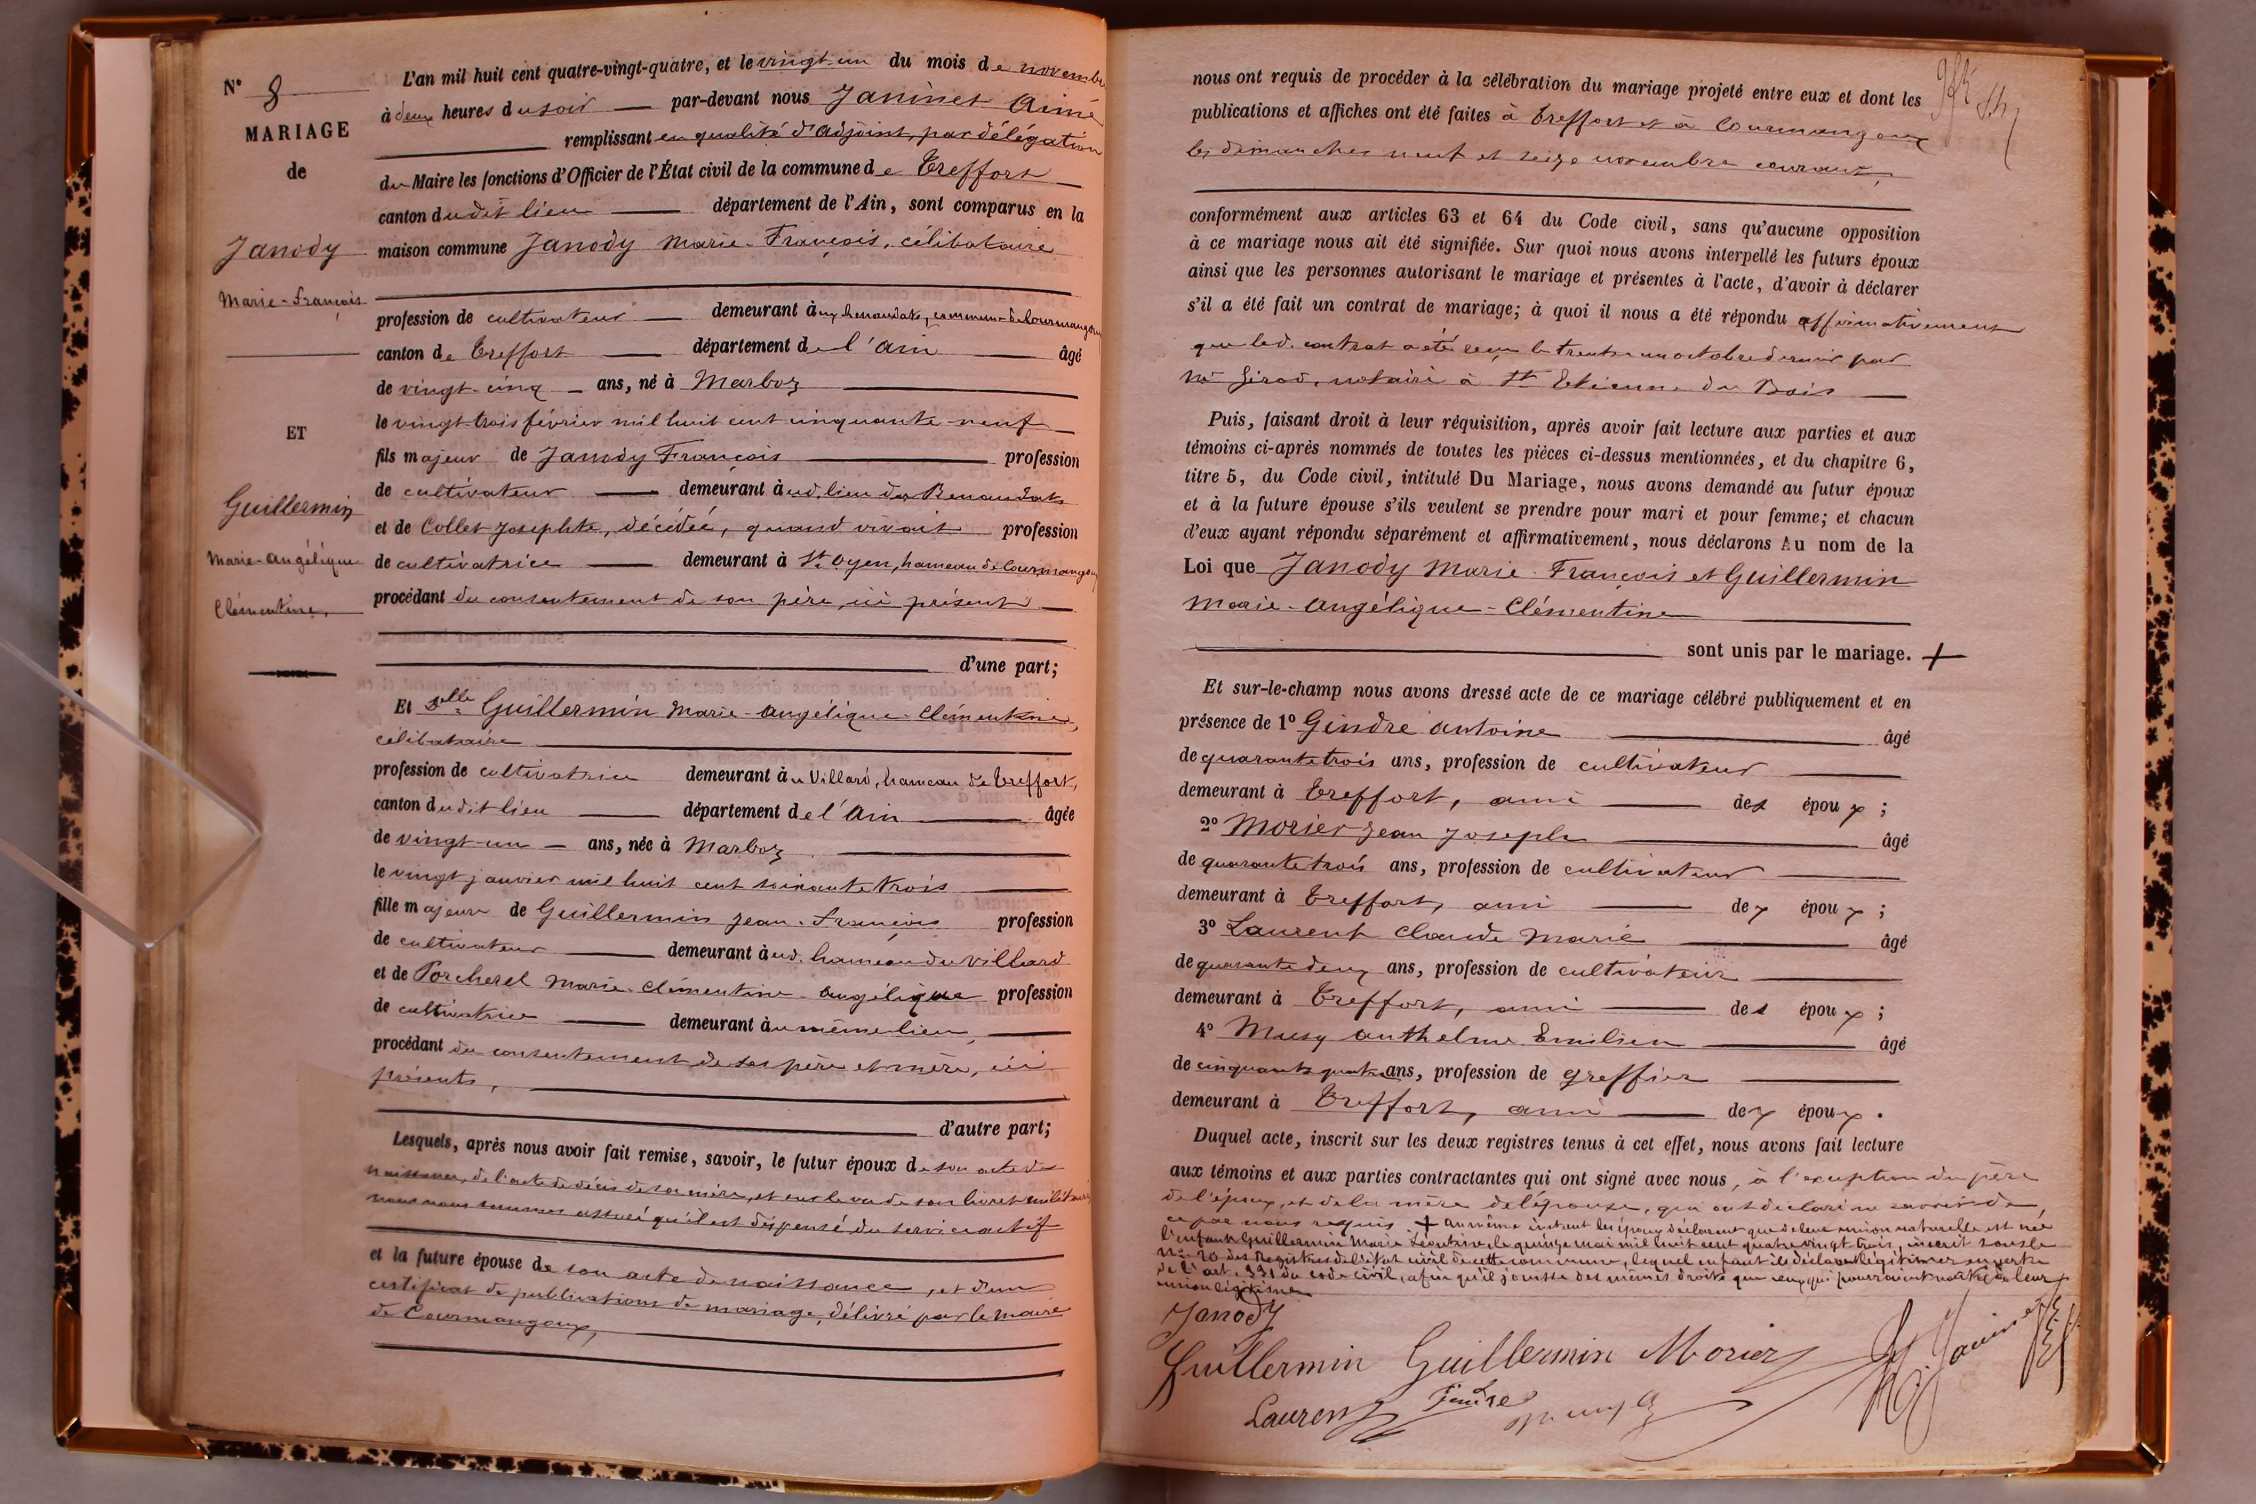 N° 8
MARIAGE
de
Janody
Marie-François
ET
Guillermin
Marie-Angélique
Clémentine,
L'an mil huit cent quatre-vingt-quatre, et le vingt-un du mois de novembre
à deux heures du soir par-devant nous Janinet Aimé
remplissant en qualité d'adjoint, par délégation
du Maire les fonctions d'Officier de l'État civil de la commune de Treffort
canton dudit lieu département de l'Ain, sont comparus en la
maison commune Janody Marie-François, célibataire
profession de cultivateur demeurant à commune de Courmangoux
canton de Treffort département de l'Ain âgé
de vingt-cinq ans, né à Marboz
le vingt-trois février mil huit cent cinquante-neuf
fils majeur de Janody François profession
de cultivateur demeurant à ud. lieu des Renaudats
et de Collet Josephte, décédée, quand vivait profession
de cultivatrice demeurant à St Oyen, hameau de Courmangoux
procédant du consentement de son père, ici présent
d'une part;
Et Delle Guillermin Marie-Angélique-Clémentine,
célibataire
profession de cultivatrice demeurant à u Villard, hameau de Treffort,
canton dudit lieu département de l'Ain âgée
de vingt-un ans, née à Marboz
le vingt janvier mil huit cent soixante trois
fille majeure de Guillermin Jean-François profession
de cultivateur demeurant à ud. hameau du Villard
et de Porcherel Marie-Clémentine-Angélique profession
de cultivatrice demeurant à u même lieu,
procédant du consentement de ses père et mère, ici
présents,
d'autre part;
Lesquels, après nous avoir fait remise, savoir, le futur époux de son acte de
naissance, de l'acte de décès de sa mère, et sur le vu de son livret militaire
nous nous sommes assuré qu'il est dispensé du service actif
et la future épouse de son acte de naissance, et d'un
certificat de publications de mariage, délivré par le maire
de Courmangoux,
nous ont requis de procéder à la célébration du mariage projeté entre eux et dont les
publications et affiches ont été faites à Treffort et à Courmangoux
les dimanches neuf et seize novembre courant,
conformément aux articles 63 et 64 du Code civil, sans qu'aucune opposition
à ce mariage nous ait été signifiée. Sur quoi nous avons interpellé les futurs époux
ainsi que les personnes autorisant le mariage et présentes à l'acte, d'avoir à déclarer
s'il a été fait un contrat de mariage; à quoi il nous a été répondu affirmativement
que led. contrat a été reçu le trente-un octobre dernier par
Me Girod, notaire à St Etienne du Bois
Puis, faisant droit à leur réquisition, après avoir fait lecture aux parties et aux
témoins ci-après nommés de toutes les pièces ci-dessus mentionnées, et du chapitre 6,
titre 5, du Code civil, intitulé Du Mariage, nous avons demandé au futur époux
et à la future épouse s'ils veulent se prendre pour mari et pour femme; et chacun
d'eux ayant répondu séparément et affirmativement, nous déclarons Au nom de la
Loi que Janody Marie-François et Guillermin
Marie-Angélique-Clémentine
sont unis par le mariage. +
Et sur-le-champ nous avons dressé acte de ce mariage célébré publiquement et en
présence de 1° Gindre Antoine âgé
de quarante trois ans, profession de cultivateur
demeurant à Treffort, ami des époux;
2° Morier Jean Joseph âgé
de quarante trois ans, profession de cultivateur
demeurant à Treffort, ami des époux;
3° Laurent Claude Marie âgé
de quarante deux ans, profession de cultivateur
demeurant à Treffort, ami des époux;
4° Musy Anthelme Emilien âgé
de cinquante quatre ans, profession de greffier
demeurant à Treffort, ami des époux.
Duquel acte, inscrit sur les deux registres tenus à cet effet, nous avons fait lecture
aux témoins et aux parties contractantes qui ont signé avec nous, à l'exception du père
de l'époux, et de la mère de l'épouse, qui ont déclaré ne savoir de
ce par nous requis. + Au même instant les époux déclarent que de leur union naturelle est née
l'enfant Guillermin Marie Léontine, le quinze mai mil huit cent quatre vingt trois, inscrit sous le
No 20 des Registres de l'état civil de cette commune, lequel enfant ils déclarent légitimer en vertu
de l'art. 331 du code civil, afin qu'il jouisse des mêmes droits que ceux qui pourraient naître de leur
union légitime
Janody
Guillermin Guillermin Morier Janinet
Laurent Gindre